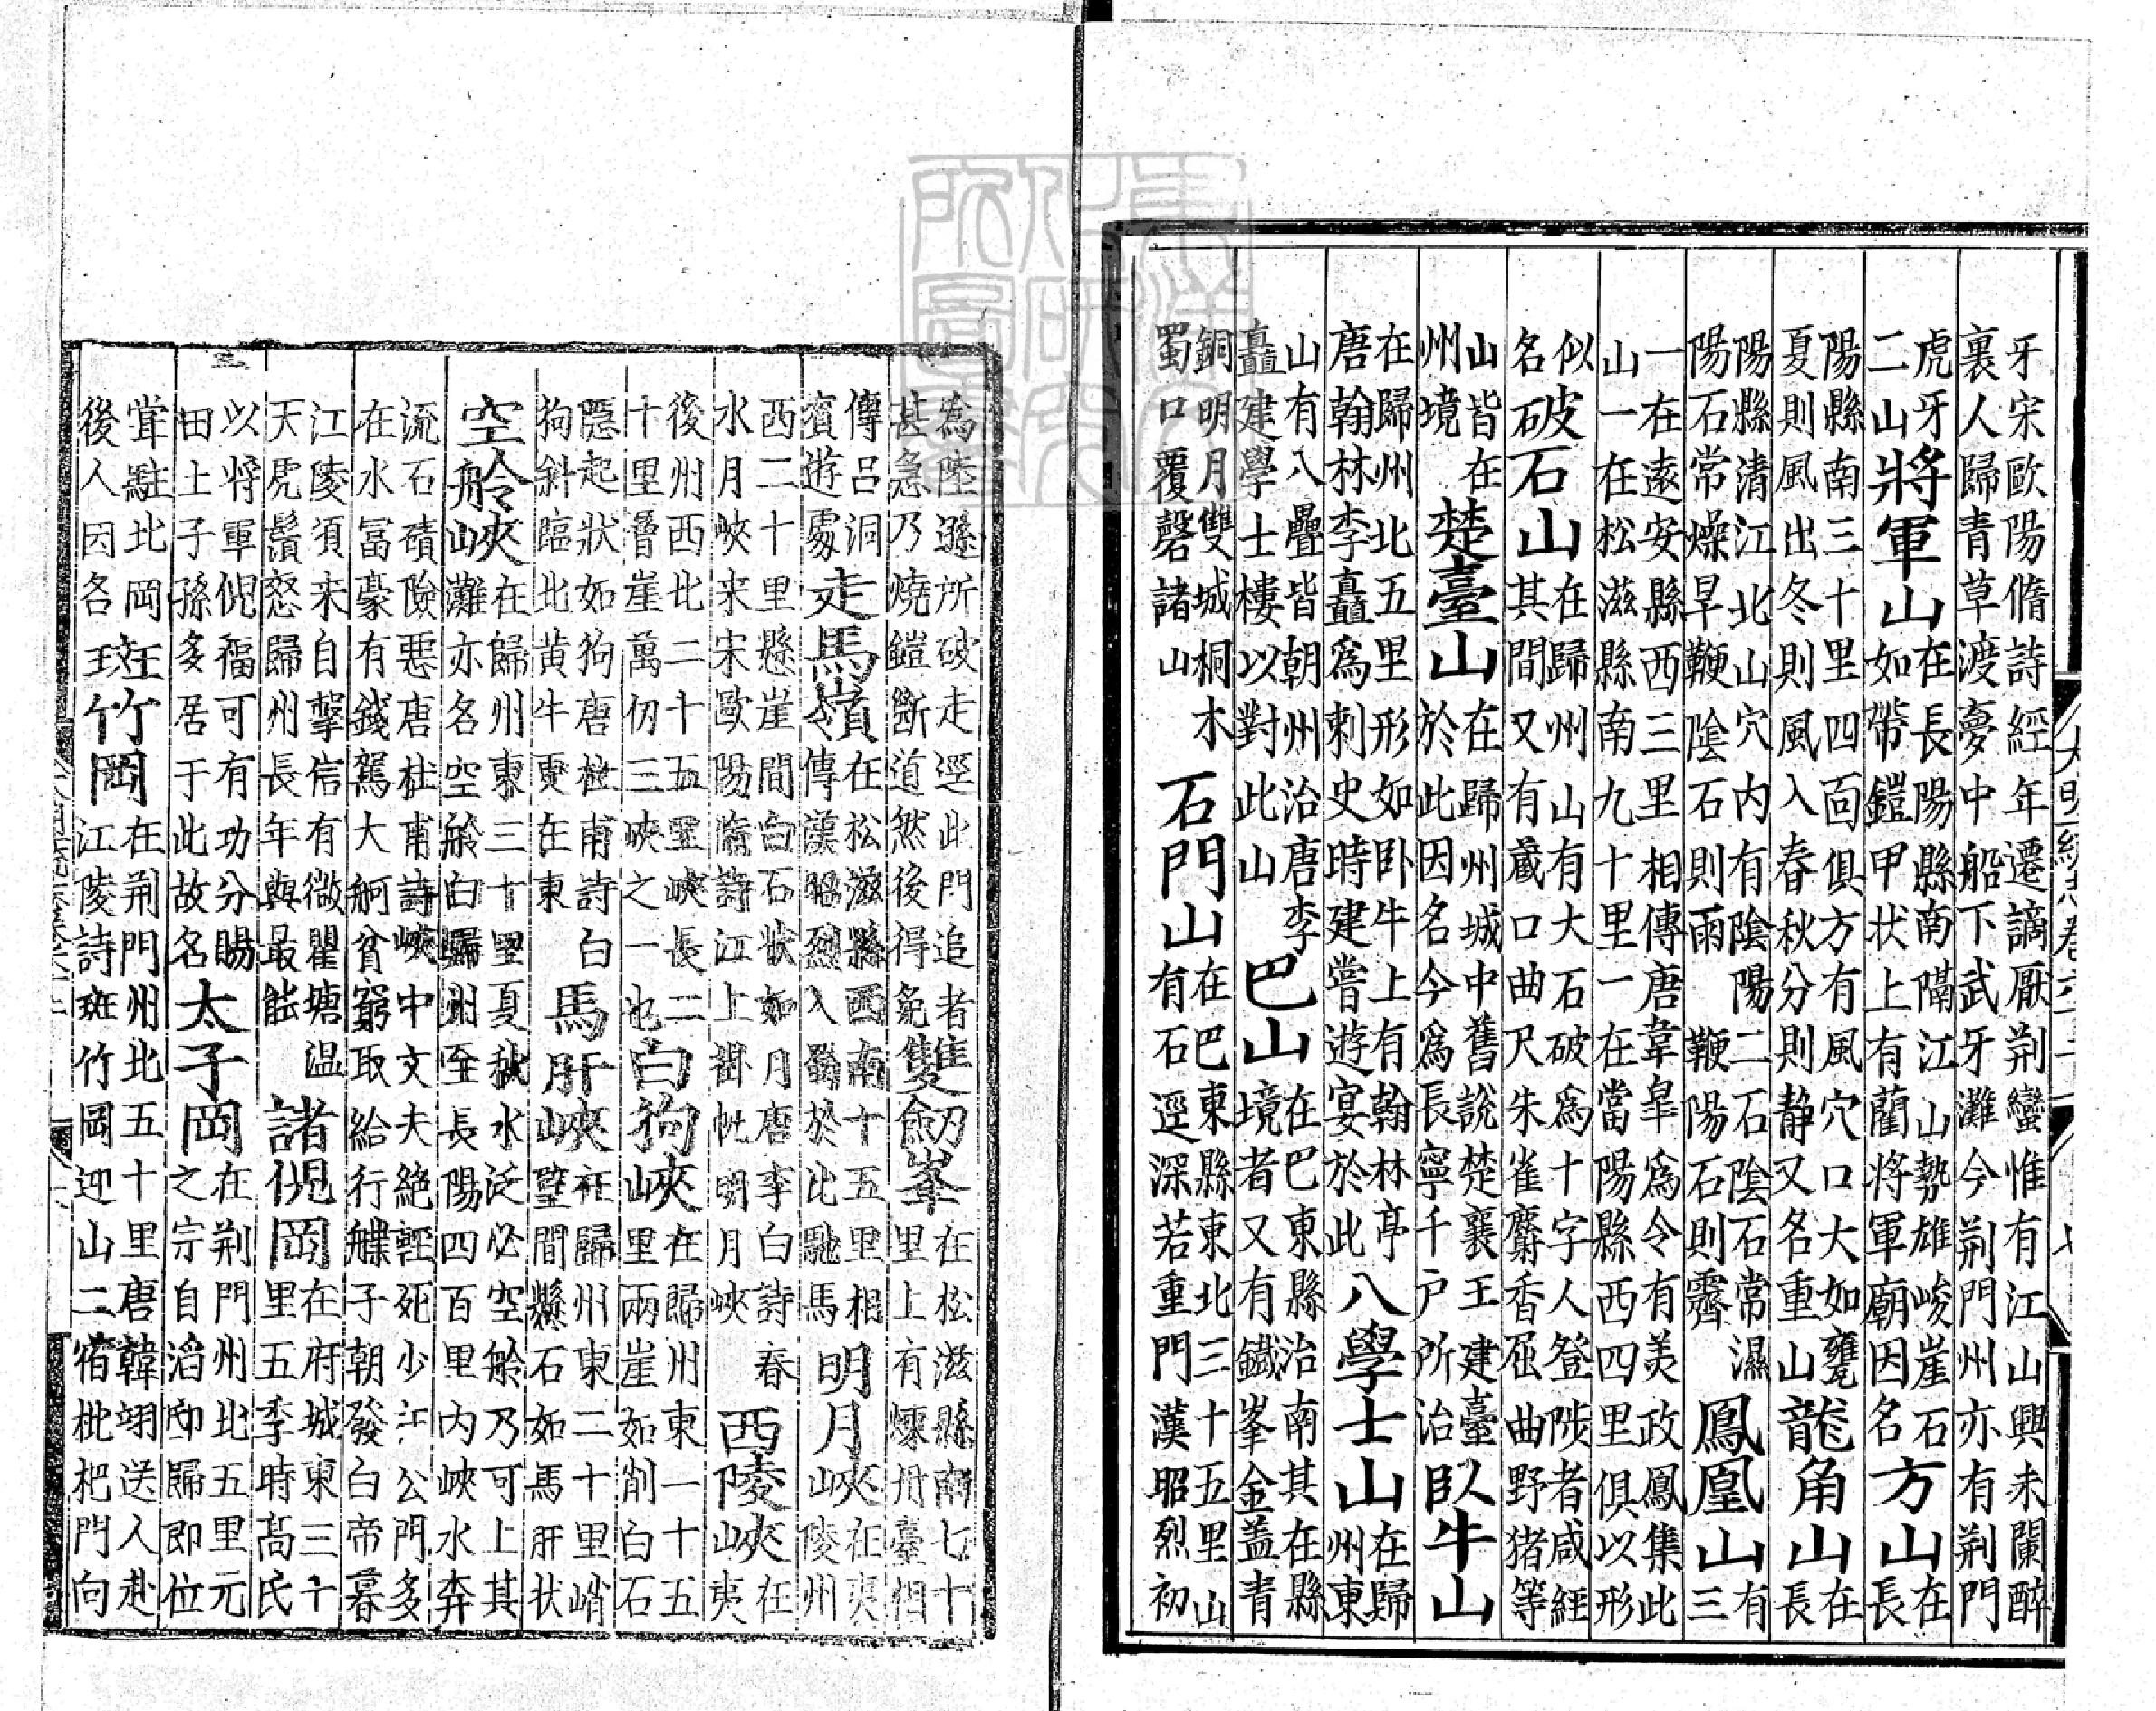 大明一統志卷六十二 七
牙宋歐陽脩詩經年遷謫厭荆蠻惟有江山興未闌醉裏人歸青草渡夢中船下武牙灘今荆門州亦有荆門
虎牙二山將軍山在長陽縣南隔江山勢雄峻崖石如帶鎧甲狀上有藺將軍廟因名方山在長
陽縣南三十里四面俱方有風穴口大如甕夏則風出冬則風入春秋分則静又名重山龍角山在長
陽縣清江北山穴内有陰陽二石陰石常濕陽石常燥旱鞭陰石則雨鞭陽石則霽鳳凰山有三
一在遠安縣西三里相傳唐韋皐爲令有美政鳳集此山一在松滋縣南九十里一在當陽縣西四里俱以形
似名破石山在歸州山有大石破爲十字人登陟者咸經其間又有藏口曲尺朱雀麝香屈曲野猪等
山皆在州境楚臺山在歸州城中舊說楚襄王建臺於此因名今爲長寧千户所治臥牛山
在歸州北五里形如卧牛上有翰林亭唐翰林李矗爲刺史時建嘗遊宴於此八學士山在歸州東
山有八疊皆朝州治唐李矗建學士樓以對此山巴山在巴東縣治南其在縣境者又有鐵峯金盖青
銅明月雙城桐木蜀口覆磬諸山石門山在巴東縣東北三十五里山有石逕深若重門漢昭烈初
爲陸遜所破走逕此門追者甚急乃燒鎧斷道然後得免雙劒峯在松滋縣南七十里上有煉丹臺相
傳吕洞賓遊處走馬嶺在松滋縣西南十五里相傳漢昭烈入蜀於此馳馬明月峽在夷陵州
西二十里懸崖間白石狀如月唐李白詩春水月峽来宋歐陽脩詩江上掛帆明月峽西陵峽在夷
後州西北二十五里峽長二十里層崖萬仞三峽之一也白狗峽在歸州東一十五里兩崖如削白石
隱起狀如狗唐杜甫詩白狗斜臨北黄牛更在東馬肝峽在歸州東二十里峭壁間懸石如馬肝狀
空舲峽在歸州東三十里夏秋水泛必空舲乃可上其灘亦名空舲白歸州至長陽四百里内峽水奔
流石磧險惡唐杜甫詩峽中丈夫絶輕死少江公門多在水冨豪有錢駕大舸貧窮取給行艓子朝發白帝暮
江陵須来自擊信有徵瞿塘温天虎鬚怒歸州長年與最能諸倪岡在府城東三十里五季時髙氏
以将軍倪福可有功分賜田土子孫多居于此故名太子岡在荆門州北五里元之宗自滔邸歸即位
嘗駐北岡後人因各斑竹岡在荆門州北五十里唐韓翊送人赴江陵詩斑竹岡迎山二宿枇杷門向